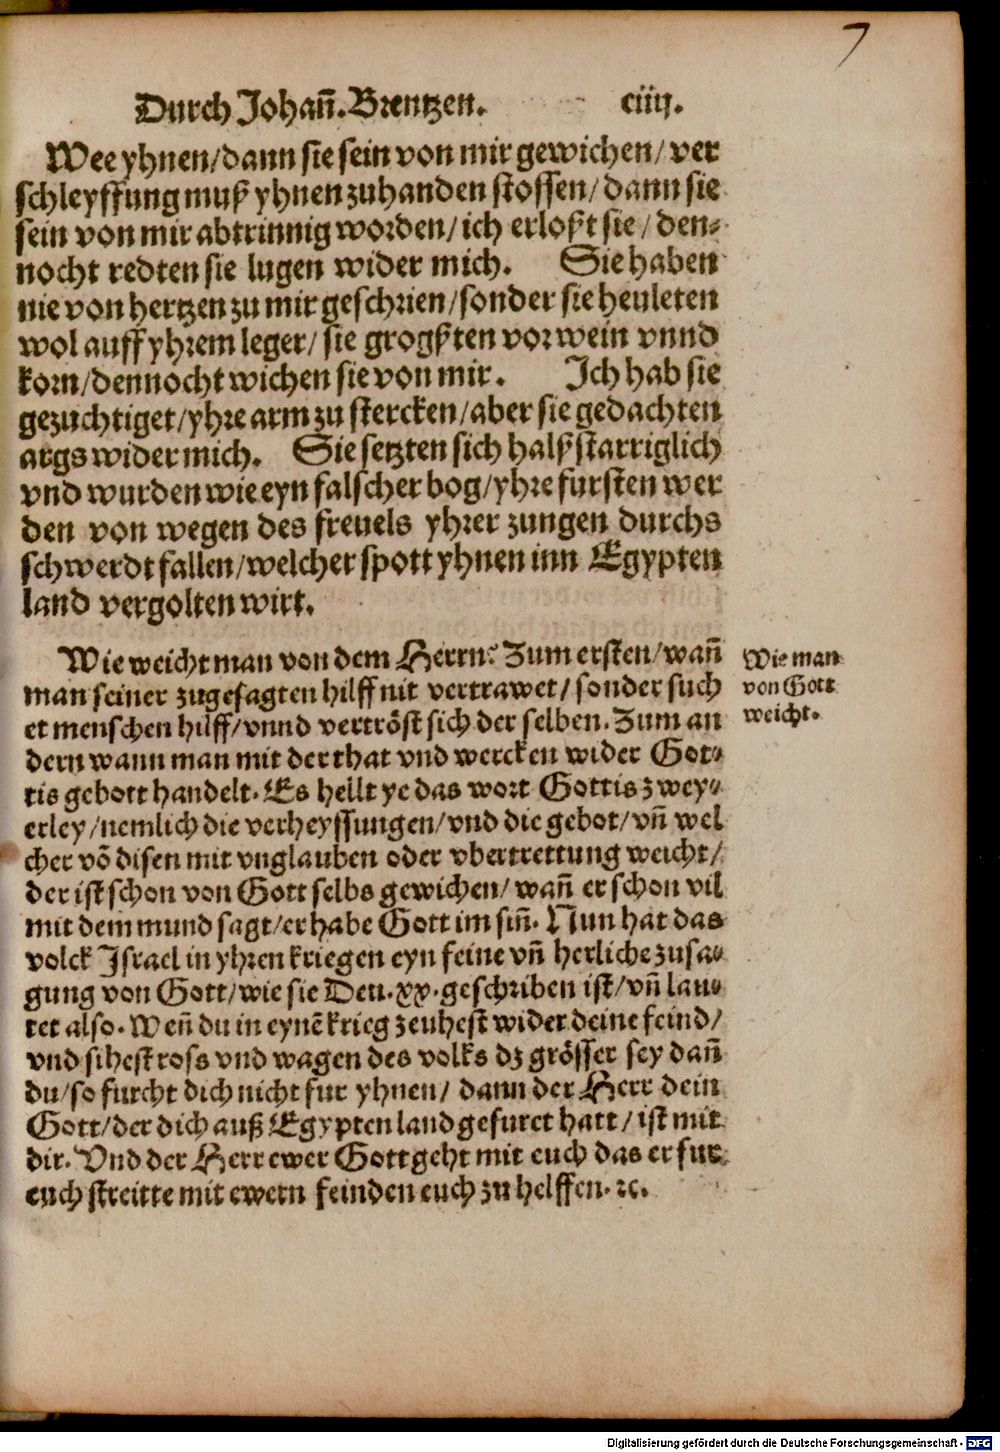 7
Durch Johañ. Brentzen. ciiij.
Wee yhnen/dann sie sein von mir gewichen/ ver
schleyffung muß yhnen zuhanden stossen/ dann sie
sein von mir abtrinnig worden/ ich erloßt sie/ den⸗
nocht redten sie lugen wider mich. Sie haben
nie von hertzen zu mir geschrien/sonder sie heuleten
wol auff yhrem leger/ sie grogßten vor wein vnnd
korn/dennocht wichen sie von mir. Ich hab sie
gezuchtiget/yhre arm zu stercken/aber sie gedachten
args wider mich. Sie setzten sich halßstarriglich
vnd wurden wie eyn falscher bog/yhre fursten wer
den von wegen des freuels yhrer zungen durchs
schwerdt fallen/welcher spott yhnen inn Egypten
land vergolten wirt.
Wie weicht man von dem Herrn? Zum ersten/wañ
man seiner zugesagten hilff nit vertrawet/ sonder such
et menschen hilff/vnnd vertröst sich der selben. Zum an
dern wann man mit der that vnd wercken wider Got⸗
tis gebott handelt. Es hellt ye das wort Gottis zwey⸗
erley/nemlich die verheyssungen/vnd die gebot/vñ wel
cher võ disen mit vnglauben oder vbertrettung weicht/
der ist schon von Gott selbs gewichen/ wañ er schon vil
mit dem mund sagt/er habe Gott im siñ. Nun hat das
volck Israel in yhren kriegen eyn feine vñ herliche zusa⸗
gung von Gott/wie sie Deu. xx. geschriben ist/vñ lau⸗
tet also. Weñ du in eynẽ krieg zeuhest wider deine feind/
vnd sihest ross vnd wagen des volks dz grösser sey dañ
du/so furcht dich nicht fur yhnen/ dann der Herr dein
Gott/der dich auß Egypten land gefuret hatt/ ist mit
dir. Vnd der Herr ewer Gott geht mit euch das er fur
euch streitte mit ewern feinden euch zu helffen. ꝛc.
Wie man
von Gott
weicht.
Digitalisierung gefördert durch die Deutsche Forschungsgemeinschaft - DFG